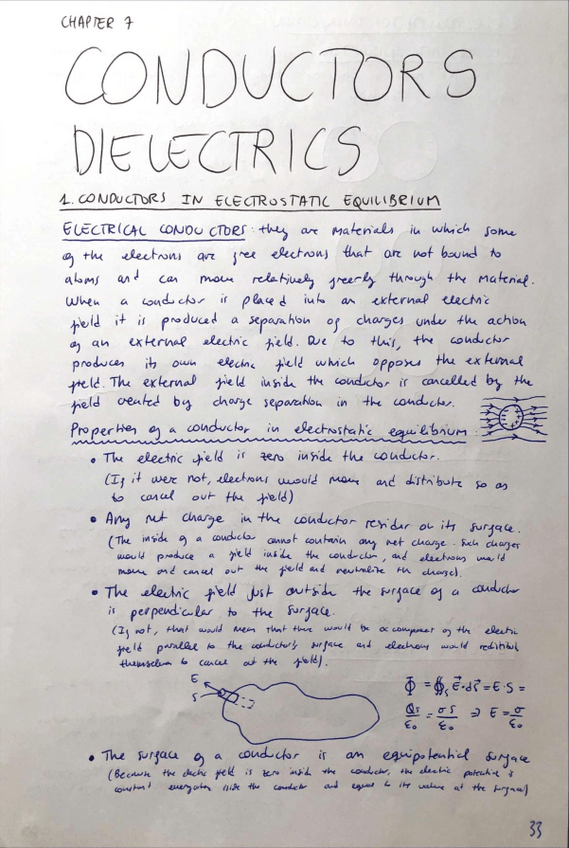 CHAPTER 7
CONDUCTORS
DIELECTRICS
1. CONDUCTORS IN ELECTROSTATIC EQUILIBRIUM
ELECTRICAL CONDUCTORS: they are materials in which some
of the electrons are free electrons that are not bound to
atoms and can move relatively freely through the material.
When a conductor is placed into an external electric
field it is produced a separation of charges under the action
of an external electric field. Due to this, the conductor
produces its own electric field which opposes the external
field. The external field inside the conductor is cancelled by the
field created by charge separation in the conductor.
Properties of a conductor in electrostatic equilibrium:
• The electric field is zero inside the conductor.
(If it were not, electrons would move and distribute so as
to cancel out the field)
• Any net charge in the conductor resides on its surface.
(The inside of a conductor cannot contain any net charge. Such charges
would produce a field inside the conductor, and electrons would
move and cancel out the field and neutralize the charge).
• The electric field just outside the surface of a conductor
is perpendicular to the surface.
(If not, that would mean that there would be a component of the electric
field parallel to the conductor's surface and electrons would redistribute
themselves to cancel out the field).
E
S
Φ = ∯ₛ E⃗·dS⃗ = E·S =
Qs/ε₀ = σS/ε₀ ⇒ E = σ/ε₀
• The surface of a conductor is an equipotential surface
(Because the electric field is zero inside the conductor, the electric potential is
constant everywhere inside the conductor and equal to its value at the surface)
33